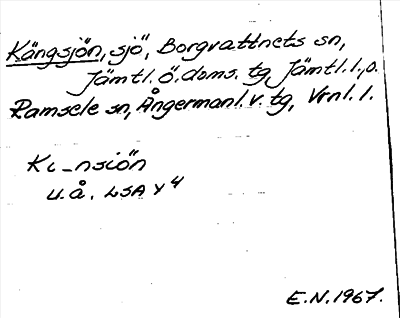 Kängsjön, sjö, Borgvattnets sn,
Jämtl. ö. doms. tg, Jämtl. l., o.
Ramsele sn, Ångermanl. v. tg, Vrnl. l.
Kc_nsiön
u. å. LSA Y 4
E.N. 1967.